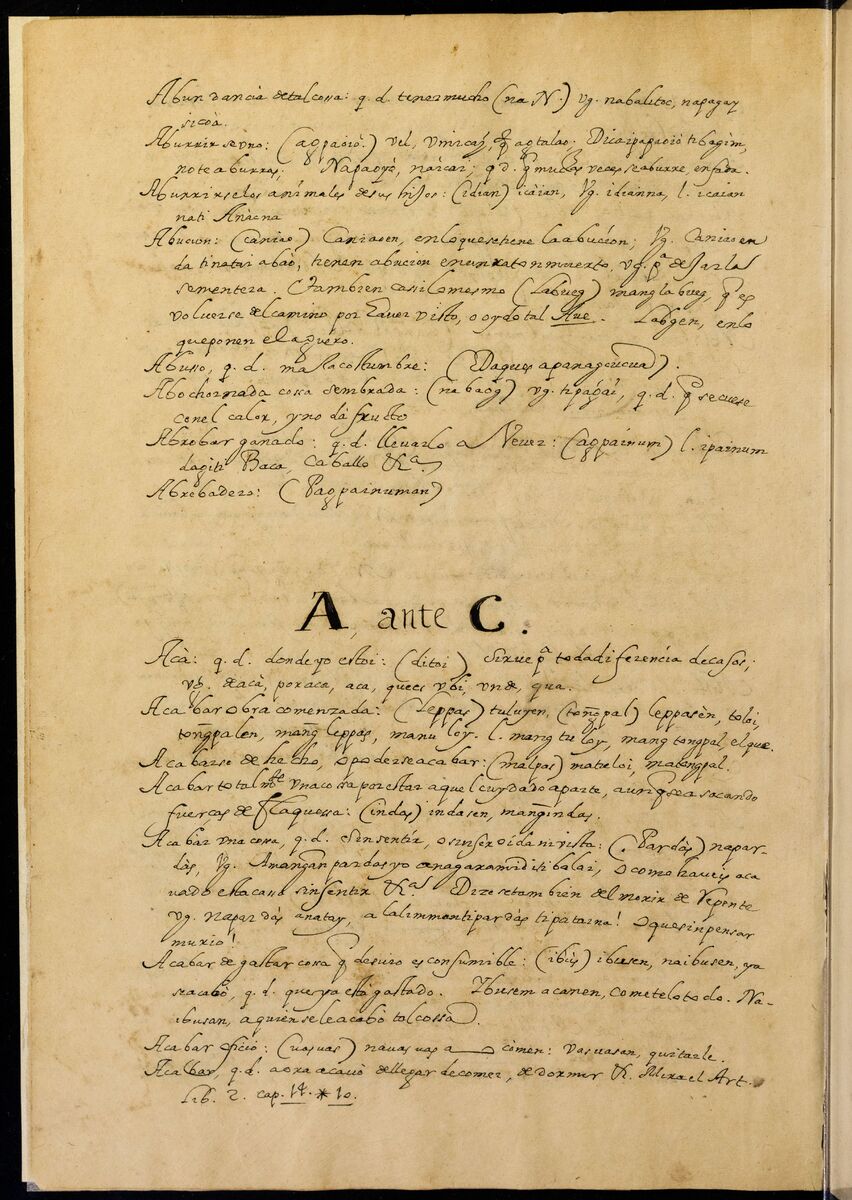 Abundancia de tal cossa: q. d. tener mucho (na N.) vg. nabalitoc, napagay
sicòa.
Aburrirse uno: (agpaòiò.) vel, Dicaipapaoiò tibagim,
note aburras; Napaoyò, naicai; q d. q muchas veces se aburre, enfada.
Aburrirse los animales de sus hijos: (idian) icaian, Vg. idianna, l. icaian
nati Anacna
Abucion: (caniao) Caniaoen, enloquesetiene la abucion; Vg. Caniaoen
da tinatai abaò, tienen abucion en un raton muerto, vg. pª. dejar la
sementera. Tambien casi lo mesmo (Labueg) manglabueg, q es
volverse del camino por haver visto, o oydo tal Aue. Labgen, enlo
que ponen el aguéro.
Abuso, q. d. mala costumbre: (Daques a panagcucua).
Abochornada cossa sembrada: (nabaòg) vg. tipagai, q. d. q se cuese
con el calor, y no dà frutto
Abrebar ganado: q. d. llevarlo a Vever: (agpainum) l. ipainum
dagiti Baca, caballo &ª.
Abrebadero: (Pagpainuman)
A, ante C.
Acà: q. d. donde yo estoi: (ditoi) Sirve pª toda diferencia de casos;
vg. de acà, por aca, aca, que es vbi, vnde, qua.
Acabar obra comenzada: (Leppas) tuluyen, (tongpal) leppasèn, toloi,
tongpalen, mang leppas, manuloy. l. mang tuloy, mang tongpal, el que.
Acabarse de hecho, o poderse acabar: (malpas) matuloi, matongpal.
Acabar totalmte. vna cossa por estar a quel cuydado aparte, aunq sea sacando
fuerças de flaquessa: (indas) indasen, mangindas.
Acabar vna cosa, q. d. Sin sentir, o sin ser oida ni vista: (Pardàs) napar-
dàs, Vg. Amangan pardasyo a nagaramid iti balai, o como haveis aca
uado esta casa sin sentir &ª. Dizese tambien del morir de repente
vg. napardàs a natay, a lalimmanti pardàs tipataina! O que sin pensar
murio!
Acabar de gastar cossa q de suio es consumible: (ibùs) ibusen, naibusen, ya
se acabò, q. d. que ya està gastado. Ibusem a canen, cometelo todo. Na-
ibusan, a quien se le acabò tal cossa.
Acabar oficio: (uasuas) nauasuas a còmen: vasuasan, quitarle.
Acabar, q. d. aora acavò de llegar de comer, de dormir &. Mira el Art.
Lib. 2. cap. 14. * 10.